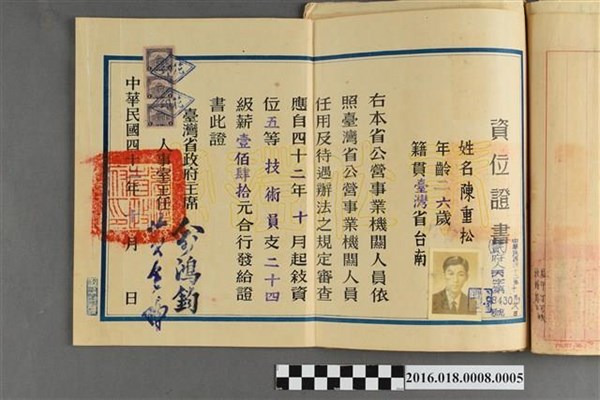 資位證書
姓名陳重松
年齡二六歲
籍貫臺灣省台南
右本省公營事業機關人員依
照臺灣省公營事業機關人員
任用及待遇辦法之規定審查
應自四十二年十月起敘資
位五等技術員支二十四
級薪壹佰肆拾元合行發給證
書此證
臺灣省政府主席
俞鴻鈞
人事室主任
中華民國四十年月日
2016.018.0008.0005